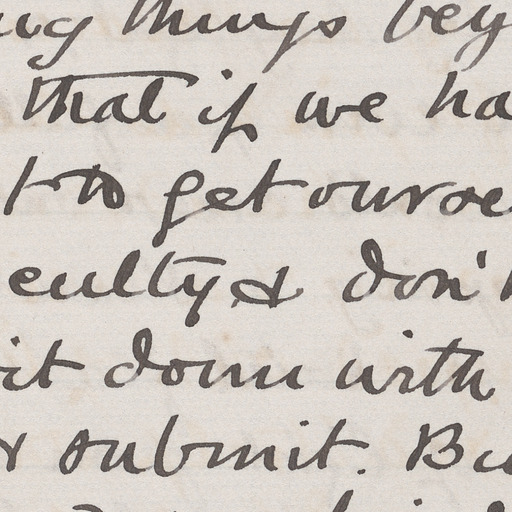 ing things bey
that if we ha
t to get ourse
culty & don't
it down with
& submit. Bu